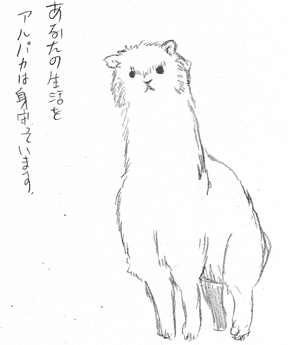 あなたの生活を
アルパカは身守っています。